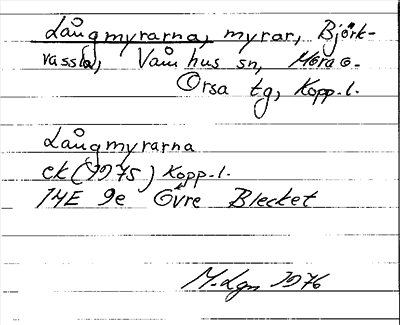 Långmyrarna, myrar, Björk-
vassla, Våmhus sn, Mora o.
Orsa tg, Kopp.l.
Långmyrarna
ek (1975) Kopp.l.
14E 9e Övre Blecket
M.Lgn 1976